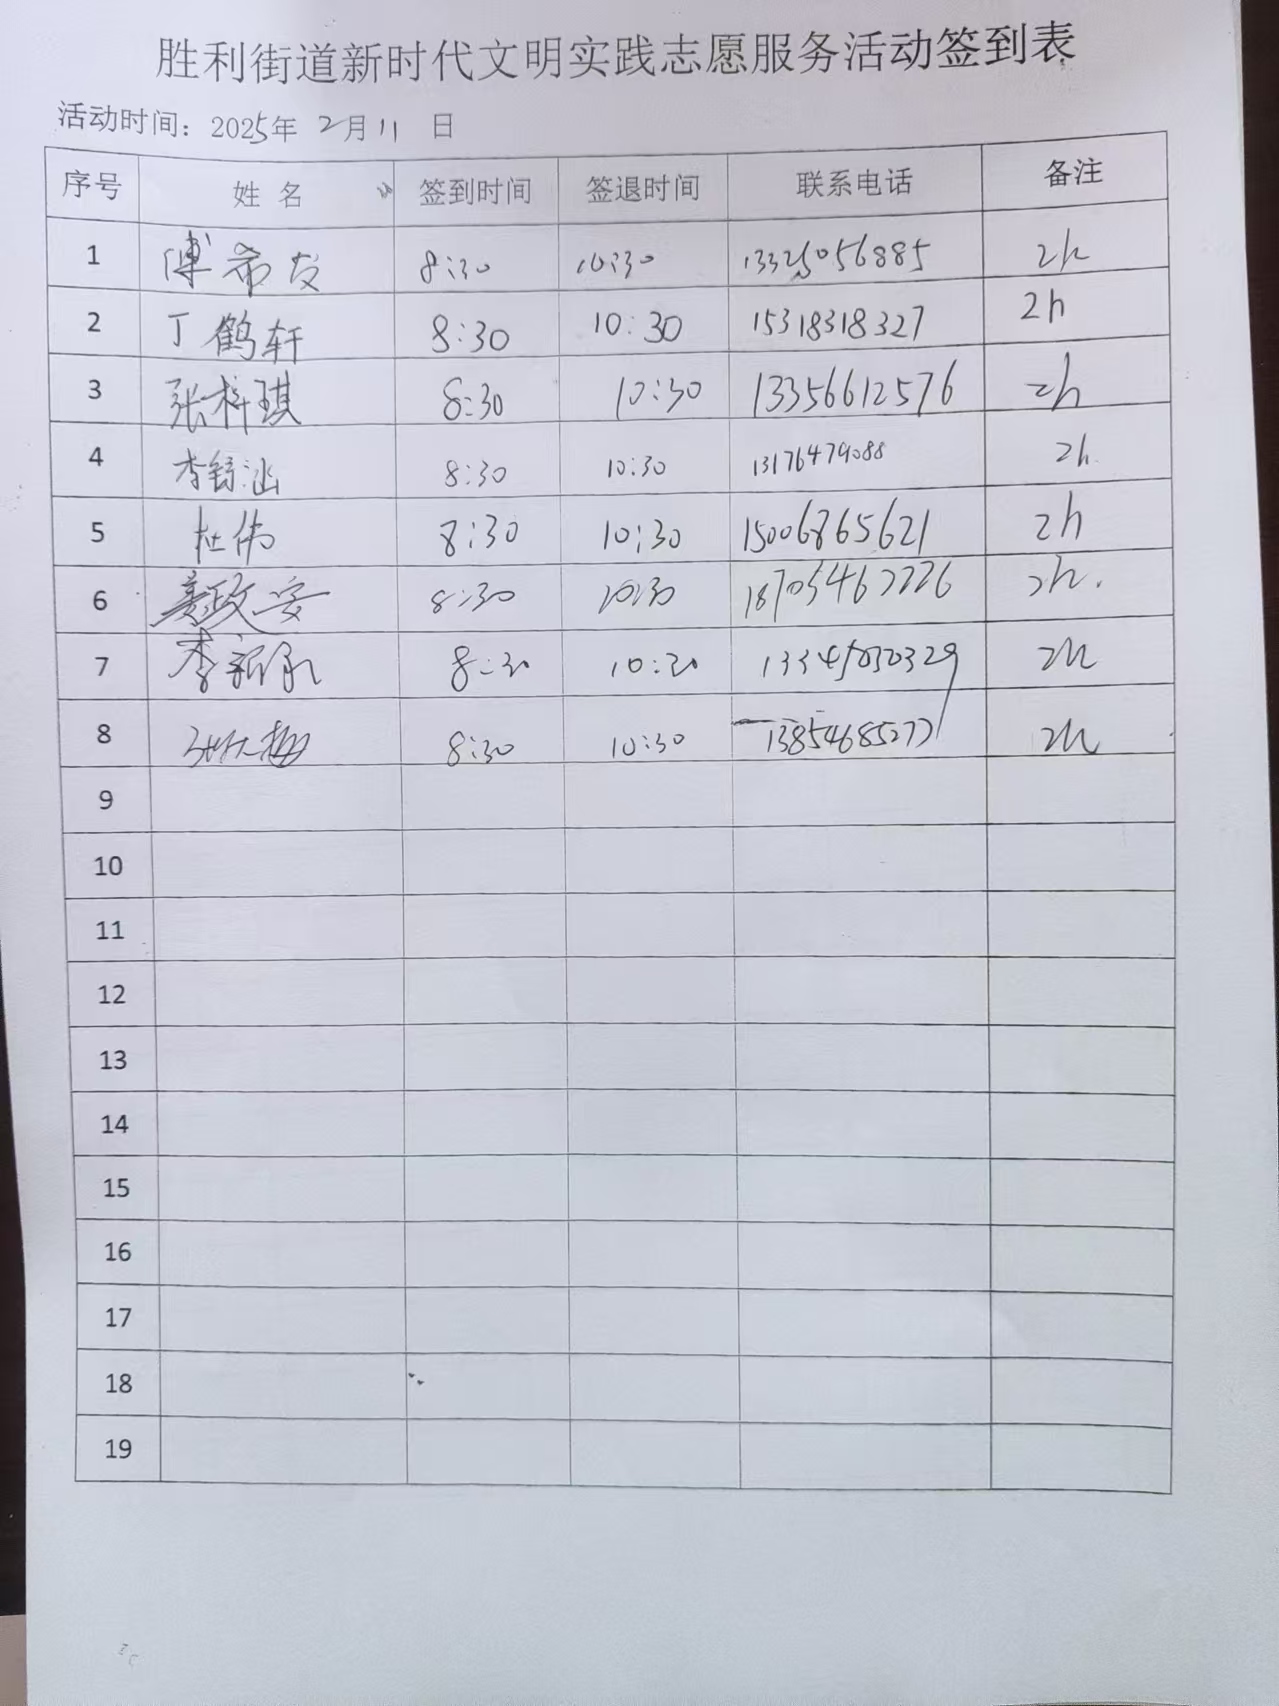 胜利街道新时代文明实践志愿服务活动签到表
活动时间：2025年 2月11 日
序号 姓 名 签到时间 签退时间 联系电话 备注
1 傅希友 8:30 10:30 13325056885 2h
2 丁鹤轩 8:30 10:30 15318318327 2h
3 张梓琪 8:30 10:30 13356612576 2h
4 李 8:30 10:30 13176479088 2h
5 杜伟 8:30 10:30 15006865621 2h
6 政安 8:30 10:30 18705462226 2h.
7 李 8:30 10:30 13345030329 2h
8 8:30 10:30 13854685277 2h
9
10
11
12
13
14
15
16
17
18
19